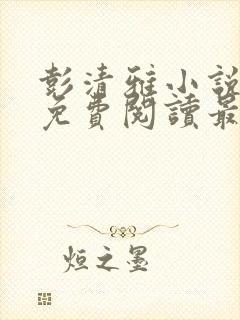 彭清雅小説
免費閱讀最
烜之墨